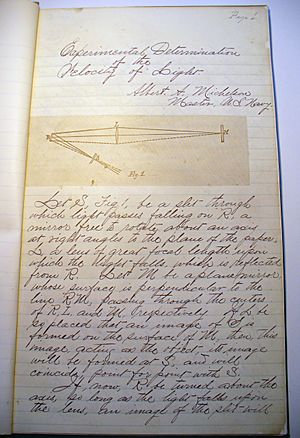 Page 1
Experimental Determination
of the
Velocity of Light
Albert A. Michelson
Master, U.S. Navy.
Fig 1.
Let S, Fig 1, be a slit through
which light passes falling on R, a
mirror free to rotate about an axis
at right angles to the plane of the paper.
L, a lens of great focal length, upon
which the light falls, which is reflected
from R. Let M be a plane mirror
whose surface is perpendicular to the
line R.M, passing through the centers
of R, L, and M respectively. If L be
so placed that an image of S is
formed on the surface of M, then, this
image acting as the object, its image
will be formed at S, and will
coincide, point for point with S.
If, now, R be turned about the
axis, so long as the light falls upon
the lens, an image of the slit will